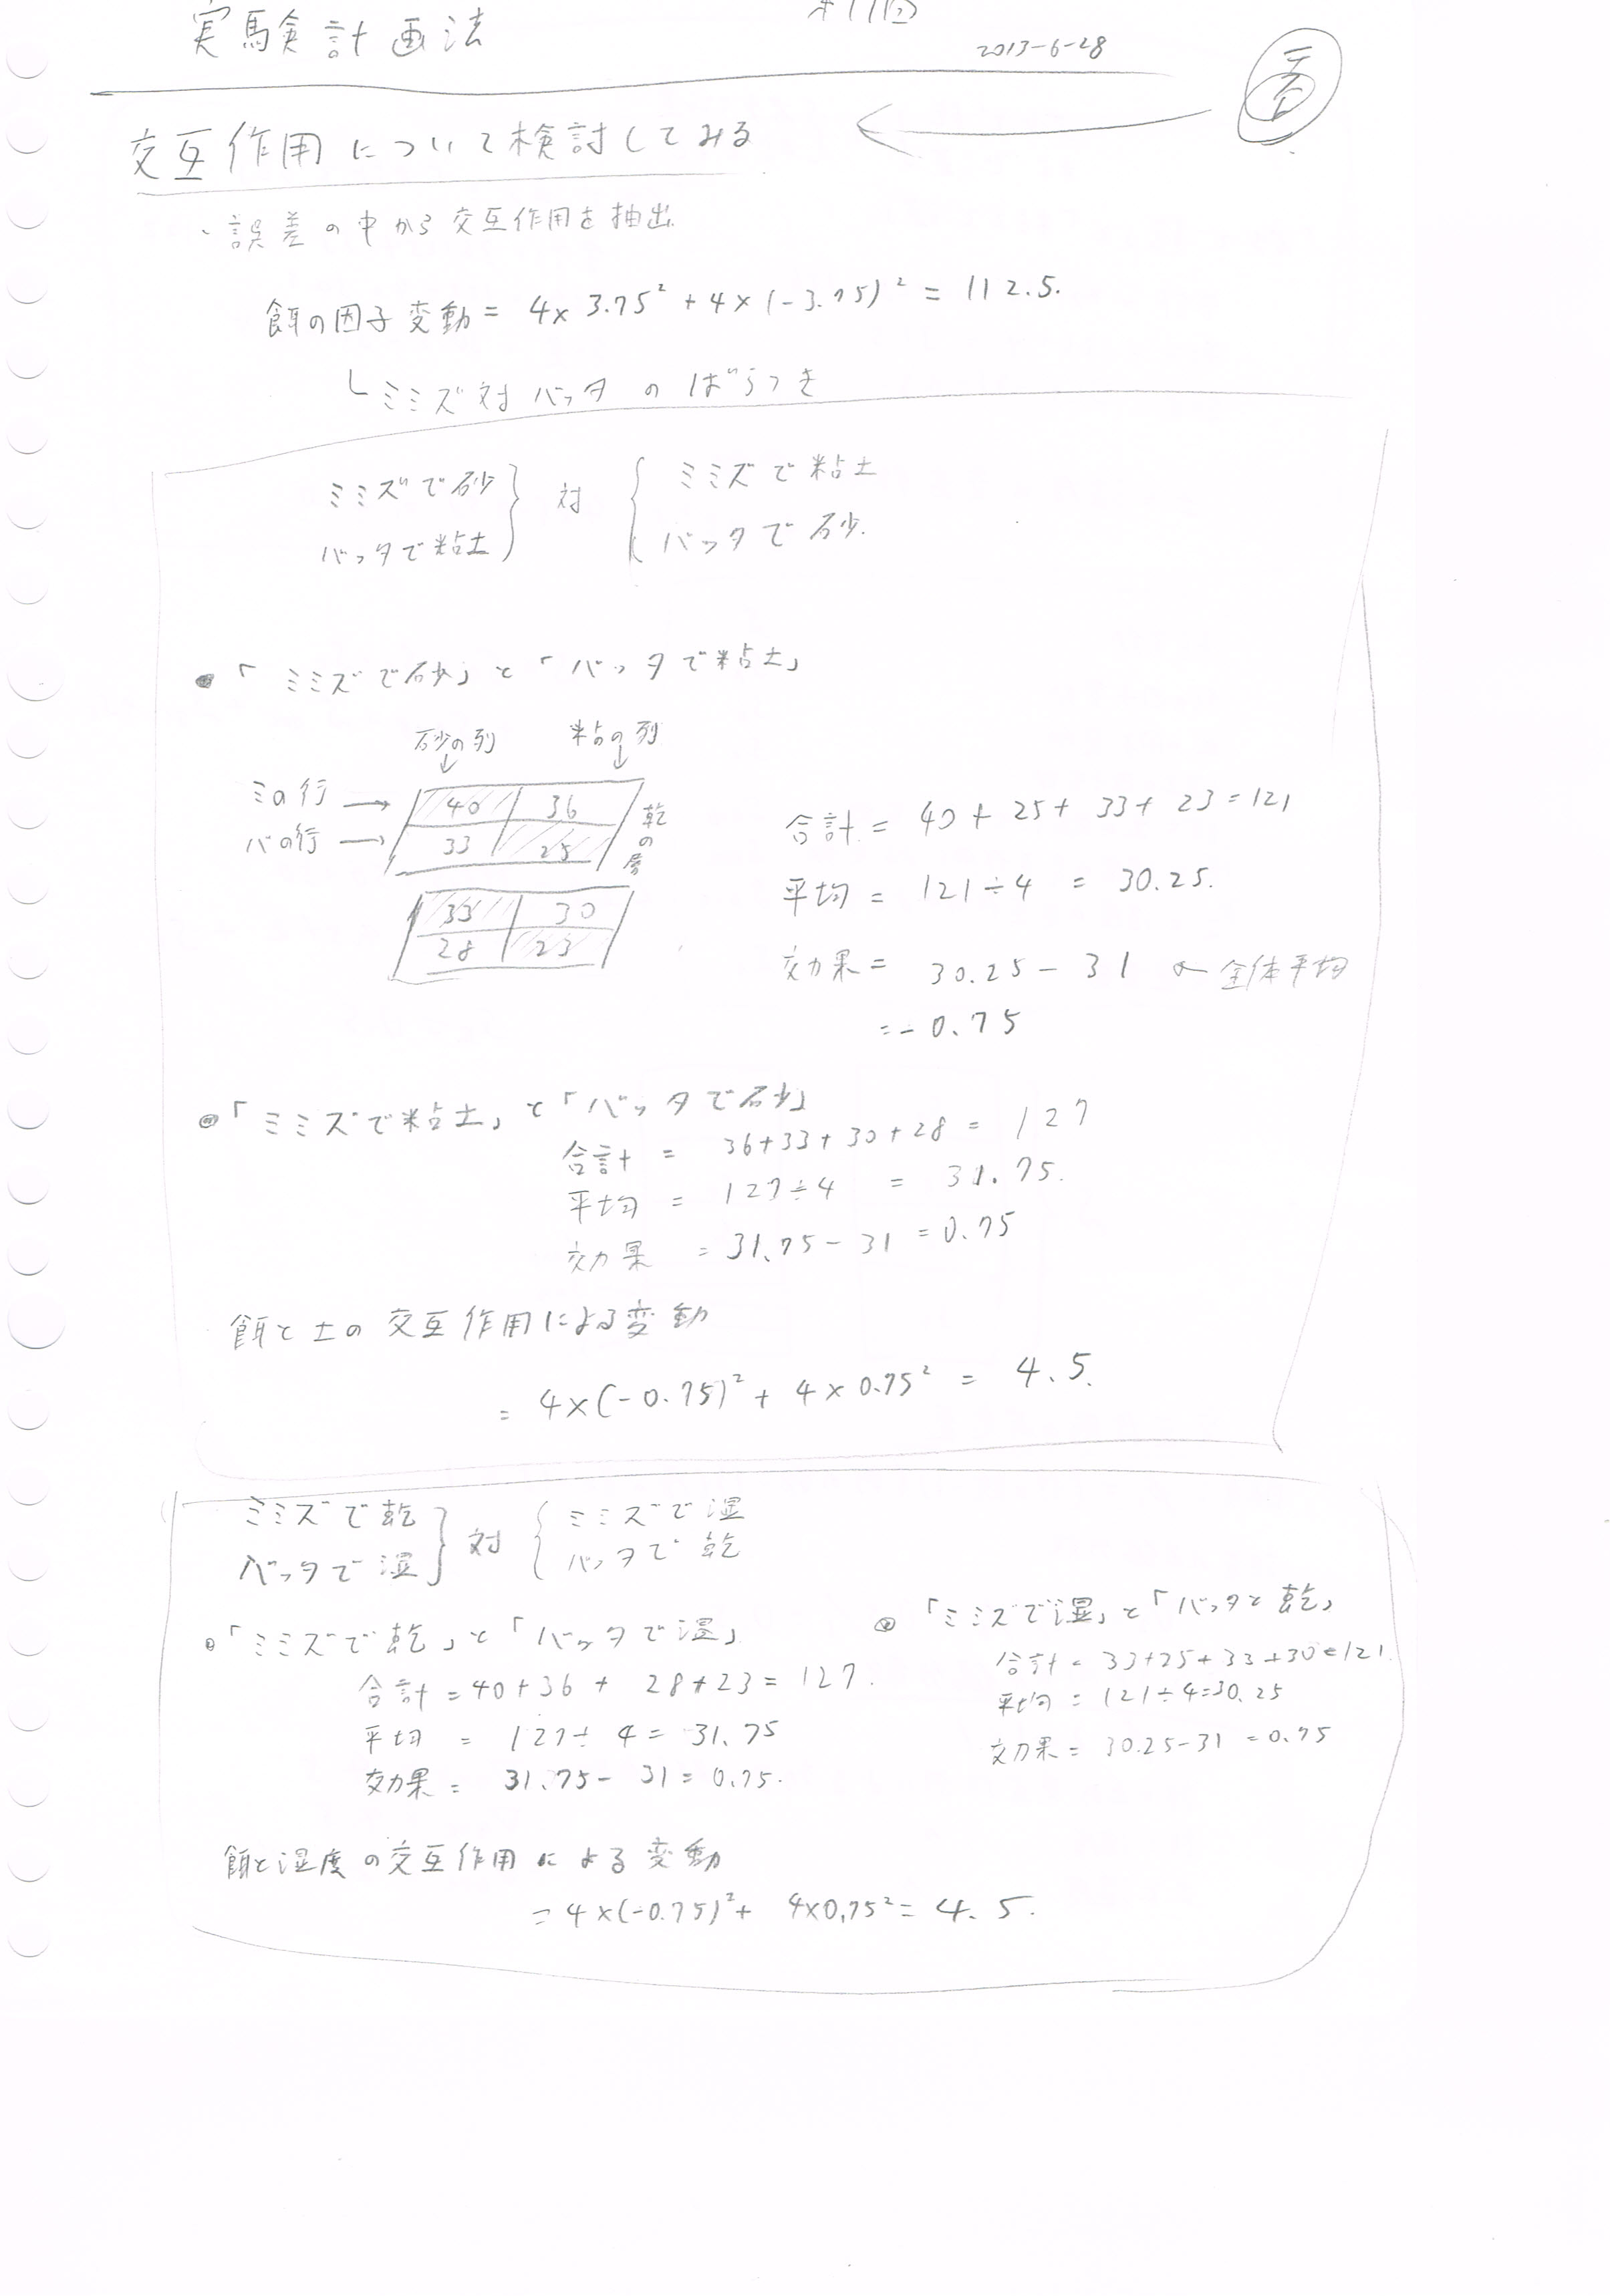 実験計画法
2013-6-28
交互作用について検討してみる
・誤差の中から交互作用を抽出
餌の因子変動 = 4×3.75² + 4×(-3.75)² = 112.5.
└ミミズ対バッタのばらつき
ミミズで砂
バッタで粘土 } 対 {
ミミズで粘土
バッタで砂.
●「ミミズで砂」と「バッタで粘土」
砂の列 粘の列
↓ ↓
ミの行 → 40 36
バの行 → 33 25
乾の層
33 30
28 23
合計 = 40 + 25 + 33 + 23 = 121
平均 = 121÷4 = 30.25.
効果 = 30.25 - 31 ← 全体平均
= -0.75
●「ミミズで粘土」と「バッタで砂」
合計 = 36+33+30+28 = 127
平均 = 127÷4 = 31.75.
効果 = 31.75 - 31 = 0.75
餌と土の交互作用による変動
= 4×(-0.75)² + 4×0.75² = 4.5.
ミミズで乾
バッタで湿 } 対 {
ミミズで湿
バッタで乾
●「ミミズで乾」と「バッタで湿」
合計 = 40+36 + 28+23 = 127.
平均 = 127÷4 = 31.75
効果 = 31.75 - 31 = 0.75.
●「ミミズで湿」と「バッタと乾」
合計 = 33+25+33+30=121.
平均 = 121÷4=30.25
効果 = 30.25-31 = 0.75
餌と湿度の交互作用による変動
= 4×(-0.75)² + 4×0.75² = 4.5.